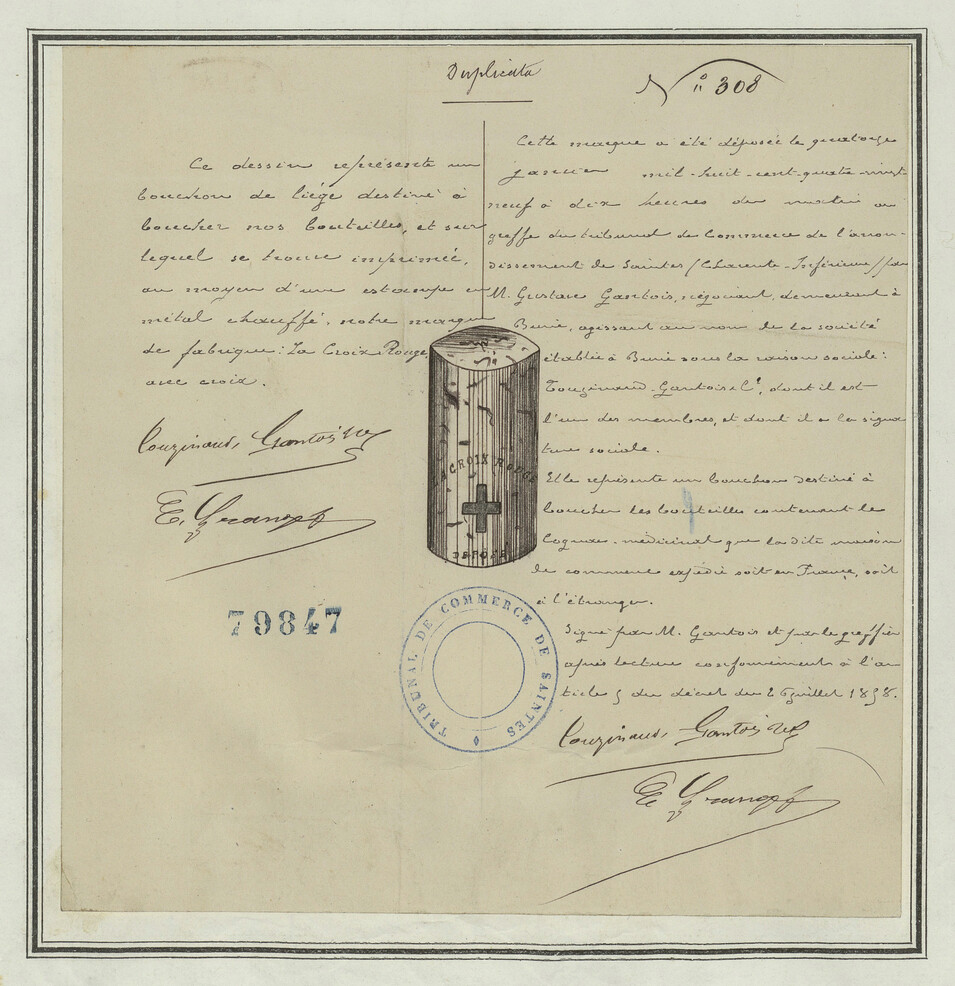 Duplicata
N° 308
Ce dessin représente un
bouchon de liége destiné à
boucher nos bouteilles, et sur
lequel se trouve imprimée,
au moyen d'une estampe en
métal chauffé, notre marque
de fabrique: La Croix Rouge
avec croix.
Couzinaud, Gantois & Cie
79847
LA CROIX ROUGE
DEPOSÉ
TRIBUNAL DE COMMERCE DE SAINTES
Cette marque a été déposée le quatorze
janvier mil-huit-cent-quatre-vingt
neuf à dix heures du matin au
greffe du tribunal de Commerce de l'arron-
dissement de Saintes (Charente-Inférieure) par
M. Gustave Gantois, négociant, demeurant à
Burie, agissant au nom de la société
établie à Burie sous la raison sociale:
Couzinaud-Gantois & Cie, dont il est
l'un des membres, et dont il a la signa
ture sociale.
Elle représente un bouchon destiné à
boucher les bouteilles contenant le
Cognac-médicinal que la dite maison
de commerce expédie soit en France, soit
à l'étranger.
Signé par M. Gantois et par le greffier
après lecture conformément à l'ar
ticle 5 du décret du 26 juillet 1858.
Couzinaud, Gantois & Cie